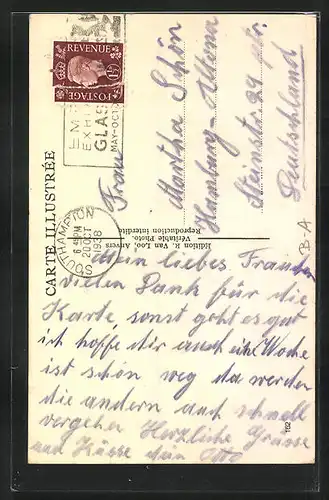 REVENUE
1½D
POSTAGE
EM
EXHI
GLAS
MAY-OCT
SOUTHAMPTON
6 45 PM
20 OCT
1938
CARTE ILLUSTRÉE
Edition R. Van Loo, Anvers
Véritable Photo.
Reproduction interdite
Frau
Martha Schön
Hamburg-Altona
Steinstr 29
Deutschland
B-A
Mein liebes
vielen Dank für die
Karte sonst geht es gut
ich hoffe dir auch eine Woche
ist schön weg da werden
die andern auch schnell
vergehen Herzliche Grüsse
und Küsse dein Otto
162